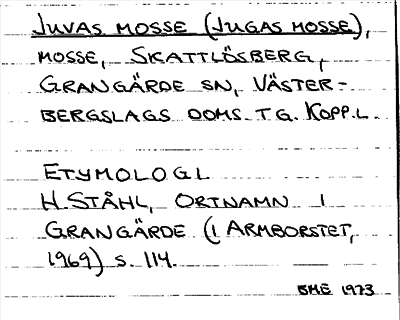 JUVAS MOSSE (JUGAS MOSSE),
MOSSE, SKATTLÖSBERG,
GRANGÄRDE SN, VÄSTER-
BERGSLAGS DOMS. TG. KOPP.L.
ETYMOLOGI
H. STÅHL, ORTNAMN I
GRANGÄRDE (I ARMBORSTET,
1969) S. 114.
BME 1973